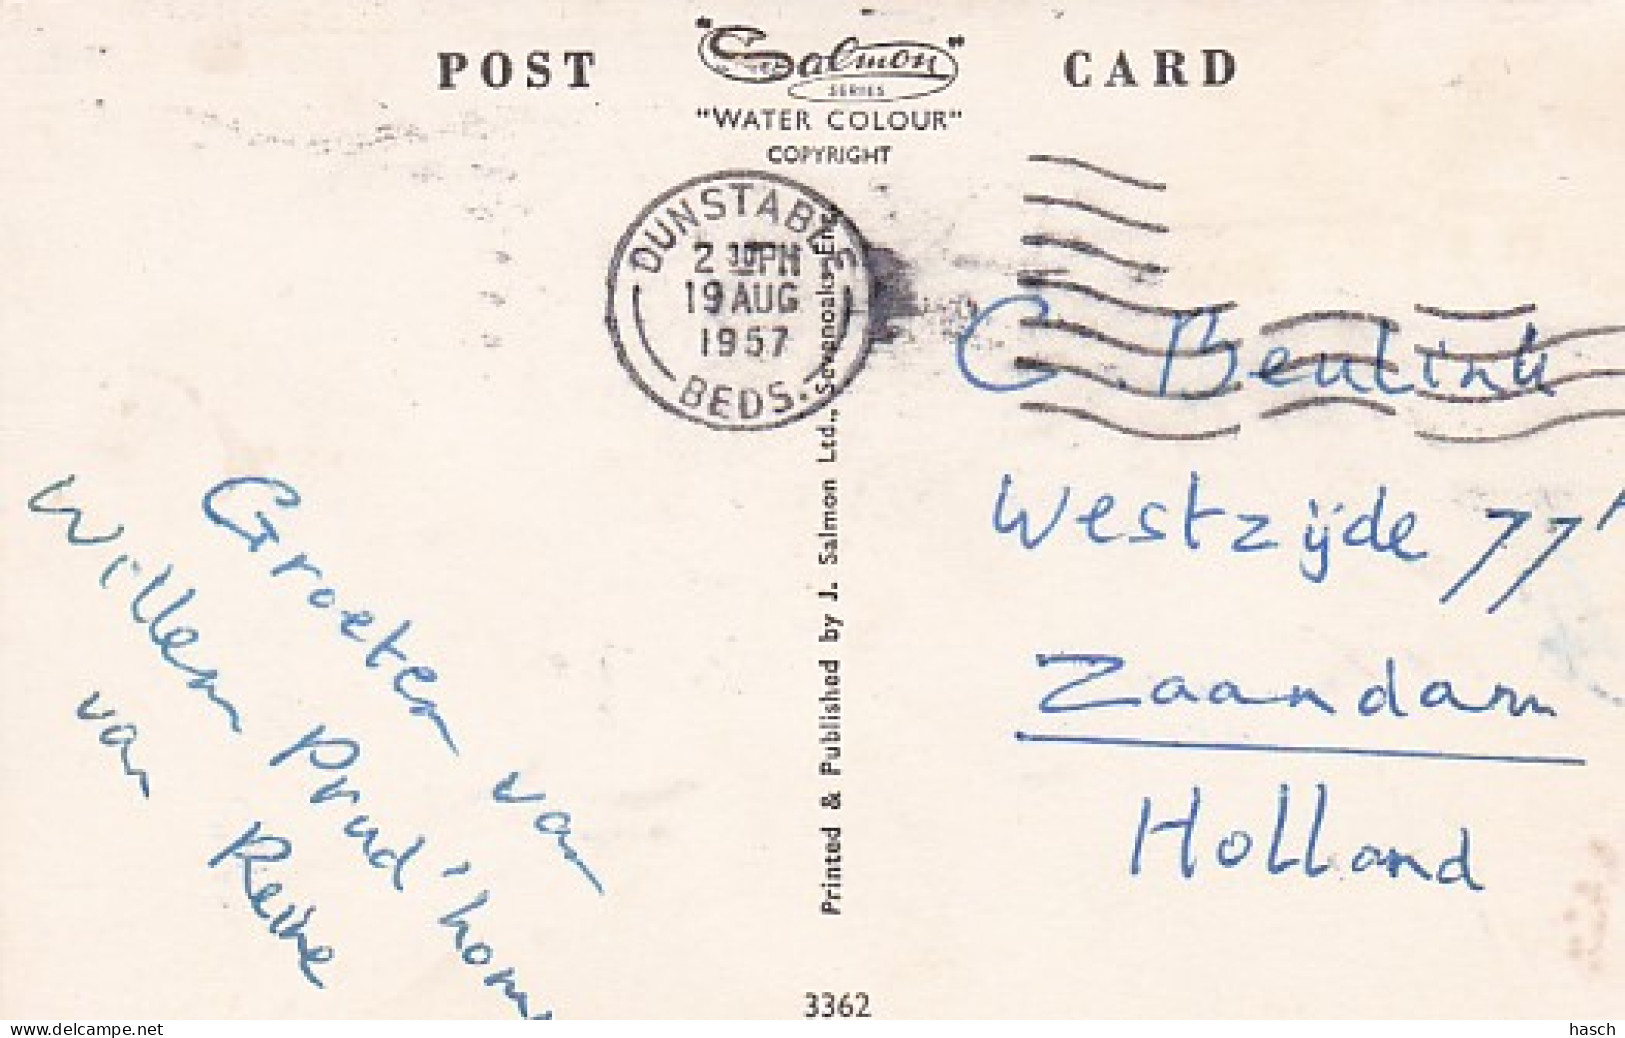 POST "Salmon" CARD
SERIES
"WATER COLOUR"
COPYRIGHT
DUNSTABLE
2 30 PM
19 AUG
1957
BEDS.
C. Beulink
Westzijde 77
Zaandam
Holland
Groeten van
Willem Prud'hom
van
Printed & Published by J. Salmon Ltd., Sevenoaks, Eng.
3362
© delcampe.net
hasch